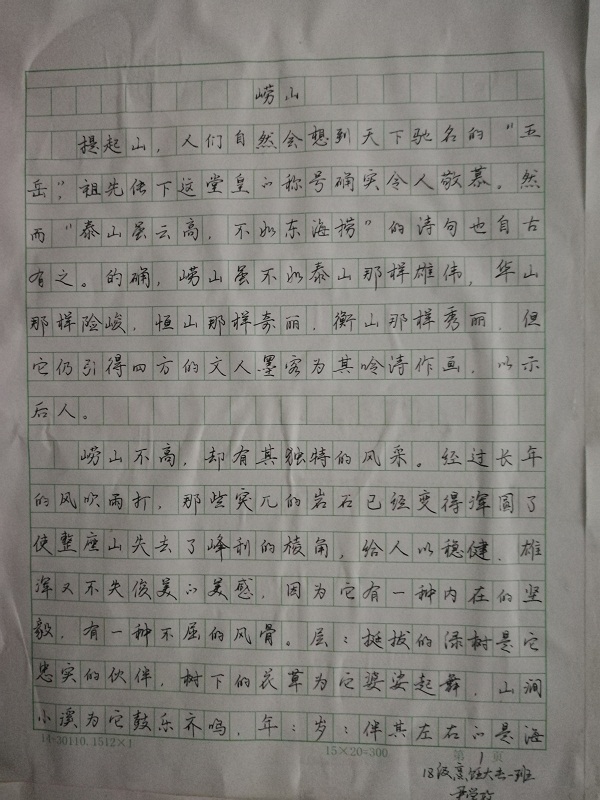 崂山
提起山，人们自然会想到天下驰名的“五
岳”，祖先传下这堂皇的称号确实令人敬慕。然
而“泰山虽云高，不如东海捞”的诗句也自古
有之。的确，崂山虽不如泰山那样雄伟，华山
那样险峻，恒山那样奇丽，衡山那样秀丽，但
它仍引得四方的文人墨客为其吟诗作画，以示
后人。
崂山不高，却有其独特的风采。经过长年
的风吹雨打，那些突兀的岩石已经变得浑圆了
使整座山失去了峰利的棱角，给人以稳健、雄
浑又不失俊美的美感，因为它有一种内在的坚
毅，有一种不屈的风骨。层：挺拔的绿树是它
忠实的伙伴，树下的花草为它婆娑起舞，山涧
小溪为它鼓乐齐鸣，年：岁：伴其左右的是海
14-30110.1512×1
15×20=300
第1页
18级烹饪大专一班